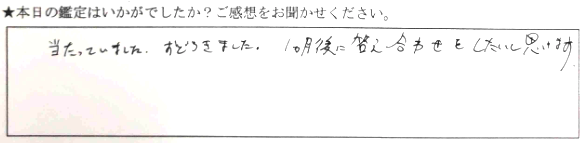 ★本日の鑑定はいかがでしたか？ご感想をお聞かせください。
当たっていました。おどろきました。1ヵ月後に答え合わせをしたいと思います